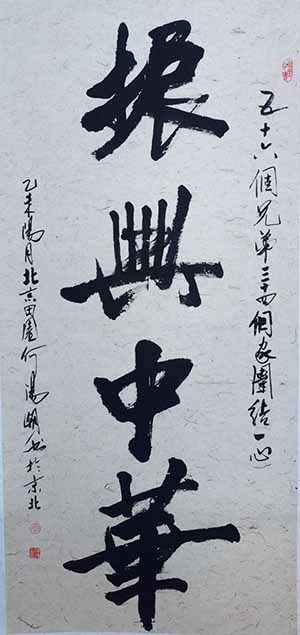 五十六個兄弟三十四個家團結一心
振興中華
乙未陽月北京田園何陽湖書於京北